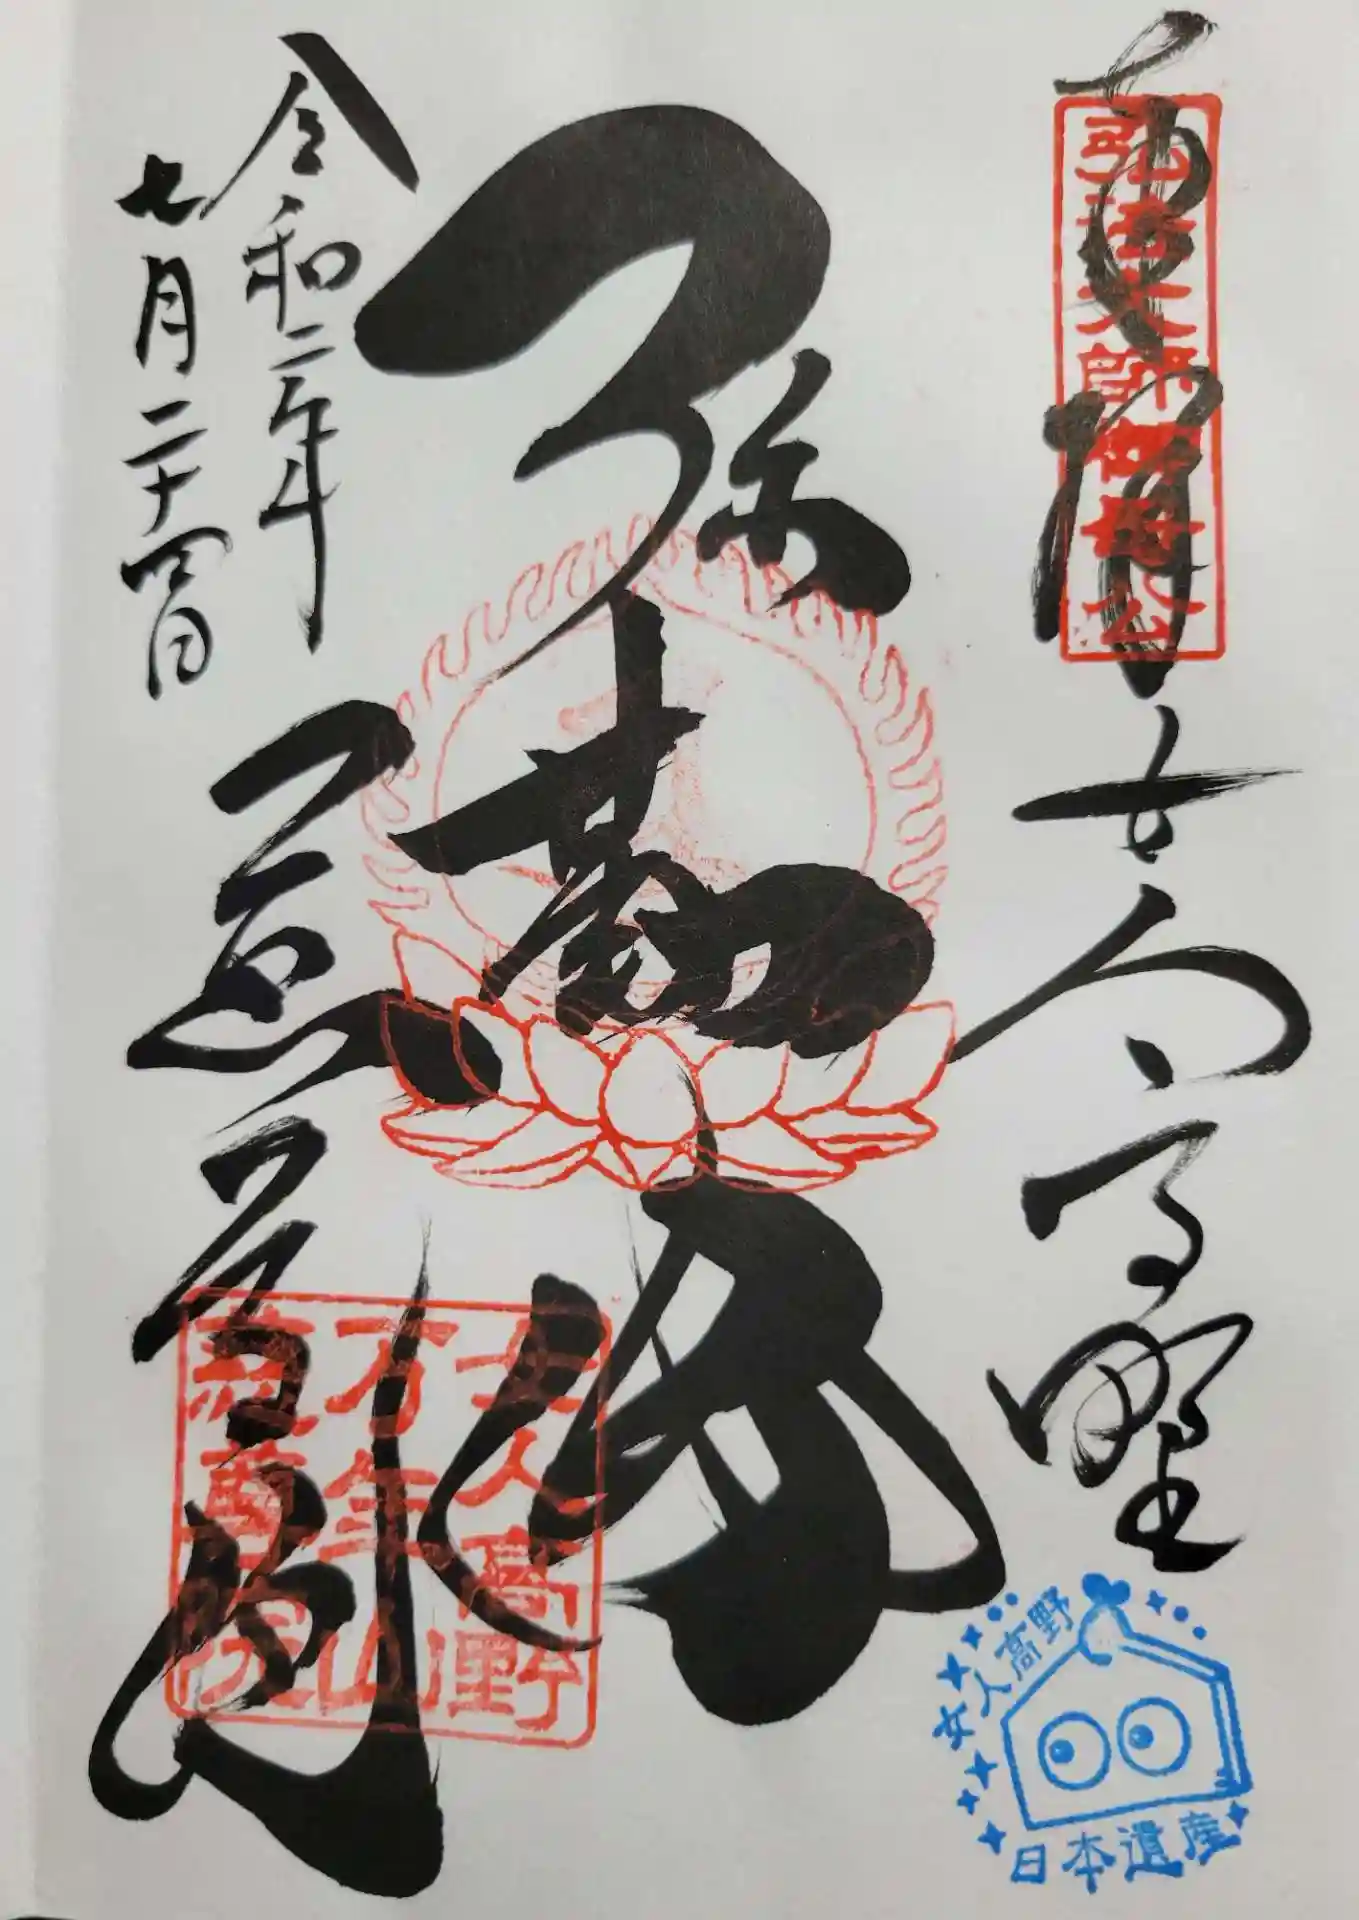 奉拝
女人高野
弘法大師御母公
弥勒佛
慈尊院
令和二年
七月二十四日
女人高野
万年山
慈尊院
女人高野
日本遺産